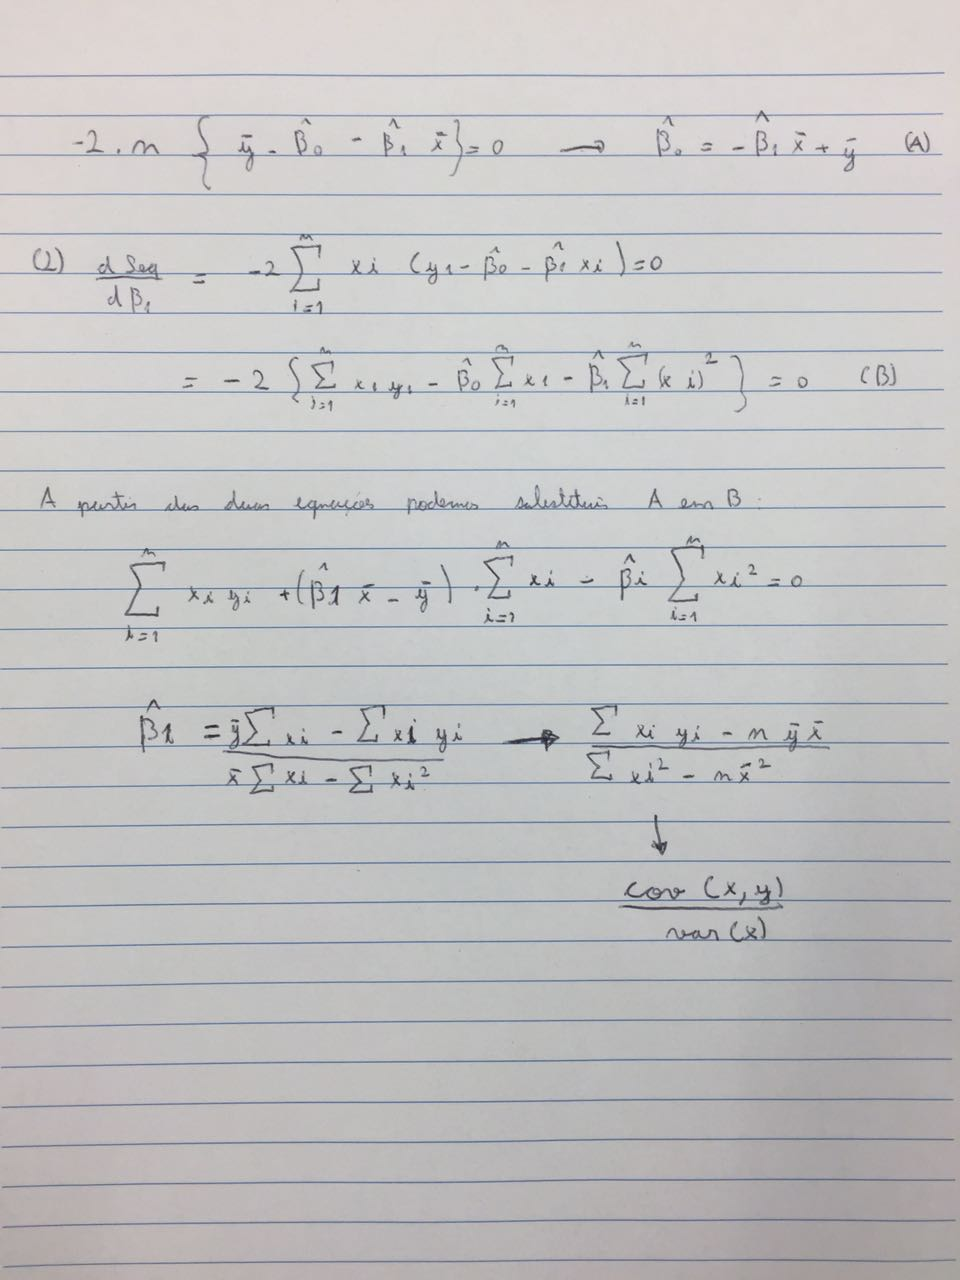 -2 . n { ȳ - β̂₀ - β̂₁ x̄ } = 0 → β̂₀ = -β̂₁ x̄ + ȳ (A)
(2) d Seq / d β₁ = -2 ∑ᵢ₌₁ⁿ xi (y₁ - β̂₀ - β̂₁ xi) = 0
= -2 { ∑ᵢ₌₁ⁿ x₁ y₁ - β̂₀ ∑ᵢ₌₁ⁿ x₁ - β̂₁ ∑ᵢ₌₁ⁿ (xi)² } = 0 (B)
A partir das duas equações podemos substituir A em B:
∑ᵢ₌₁ⁿ xi yi + (β̂1 x̄ - ȳ) . ∑ᵢ₌₁ⁿ xi - β̂i ∑ᵢ₌₁ⁿ xi² = 0
β̂1 = (ȳ ∑ xi - ∑ xi yi) / (x̄ ∑ xi - ∑ xi²) → (∑ xi yi - n ȳ x̄) / (∑ xi² - n x̄²)
↓
cov (x, y) / var (x)